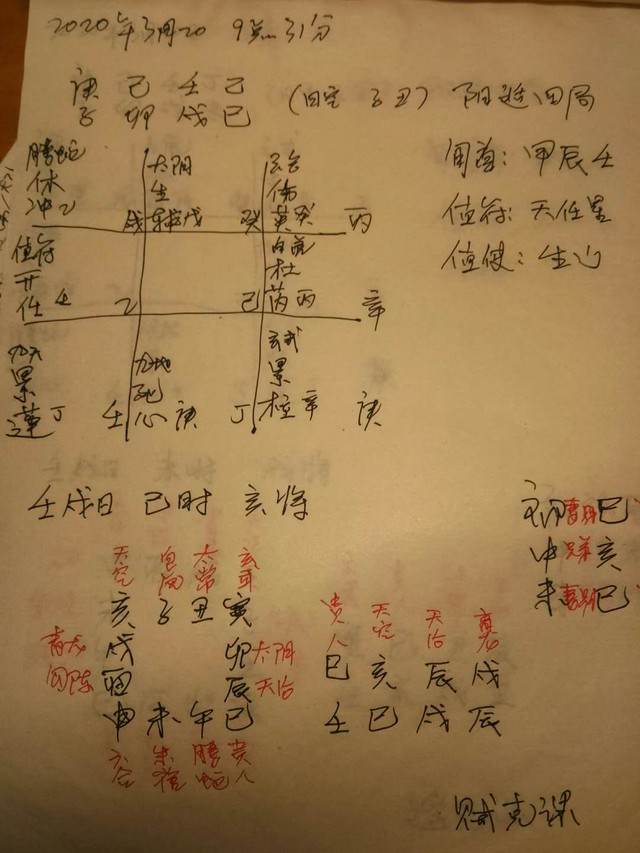 2020年3月20 9点31分
庚 己 壬 乙
子 卯 戌 巳 (日空 子丑) 阳遁四局
旬首:甲辰壬
值符:天任星
值使:生门
腾蛇 太阴 六合
休 生 伤
冲乙 戊 辅戊 癸 英癸 丙
值符 白虎
开 杜
任壬 乙 己 芮丙 辛
九天 九地 玄武
景 死 景
蓬丁 壬 心庚 丁 柱辛 庚
壬戌日 巳时 亥将
初 妻财 巳
中 兄弟 亥
末 妻财 巳
天空 白虎 太常 玄武
亥 子 丑 寅
青龙 戌 卯 太阴
勾陈 酉 辰 天后
申 未 午 巳
六合 朱雀 腾蛇 贵人
贵人 天空 天后 青龙
巳 亥 辰 戌
壬 巳 戌 辰
贼克课